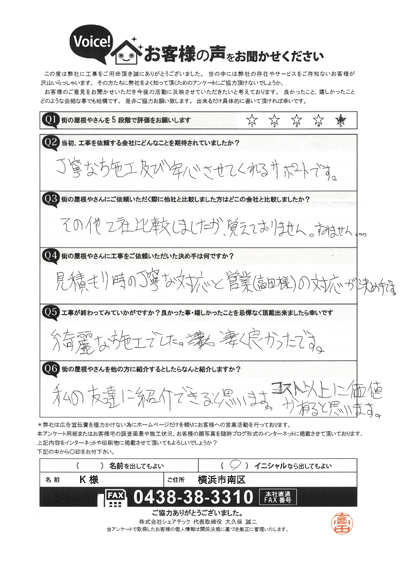 Voice!
お客様の声をお聞かせください
この度は弊社に工事をご用命頂き誠にありがとうございました。世の中には弊社の存在やサービスをご存知ないお客様が
沢山いらっしゃいます。その方たちに弊社をよく知って頂くためのアンケートにご協力頂けないでしょうか。
お客様のご意見をお聞かせいただき今後の活動に反映させていただきたいと考えております。良かったこと、嬉しかったこと
どのような些細な事でも結構です。是非ご協力お願い致します。出来るだけ具体的に書いて頂ければ幸いです。
Q1 街の屋根やさんを5段階で評価をお願いします ☆ ☆ ☆ ☆ ★
Q2 当初、工事を依頼する会社にどんなことを期待されていましたか？
丁寧なお施工及び安心させてくれるサポートです。
Q3 街の屋根やさんにご依頼いただく際に他社と比較しました方はどこの会社と比較しましたか？
その他2社比較しましたが、覚えておりません。すみません…
Q4 街の屋根やさんに工事をご依頼いただいた決め手は何ですか？
見積もり時の丁寧な対応と営業(富田様)の対応が決め手です
Q5 工事が終わってみていかがですか？良かった事・嬉しかったことを忌憚なく頂戴出来ましたら幸いです
綺麗なお施工でした。凄く良かったです。
Q6 街の屋根やさんを他の方に紹介するとしたらなんと紹介しますか？
私の友達に紹介できると思います。コスト以上に価値
が有ると思います。
＊弊社は広告宣伝費を極力かけない為にホームページだけを頼りにお客様への営業活動を行っております。
本アンケート用紙またはお客様宅の調査風景や施工状況、お客様の顔写真を随時ブログ形式のインターネットに掲載させて頂いております。
上記内容をインターネットや印刷物に掲載させて頂いてもよろしいでしょうか？
下記の中から〇印をお付下さい。
（　）名前を出してもよい （〇）イニシャルなら出してもよい
名前 K 様 ご住所 横浜市南区
FAX 0438-38-3310 本社直通 FAX番号
ご協力ありがとうございました。
株式会社シェアテック 代表取締役 大久保 誠二
当アンケートで取得したお客様の個人情報は関係法規に基づき厳正に管理いたします。
富田